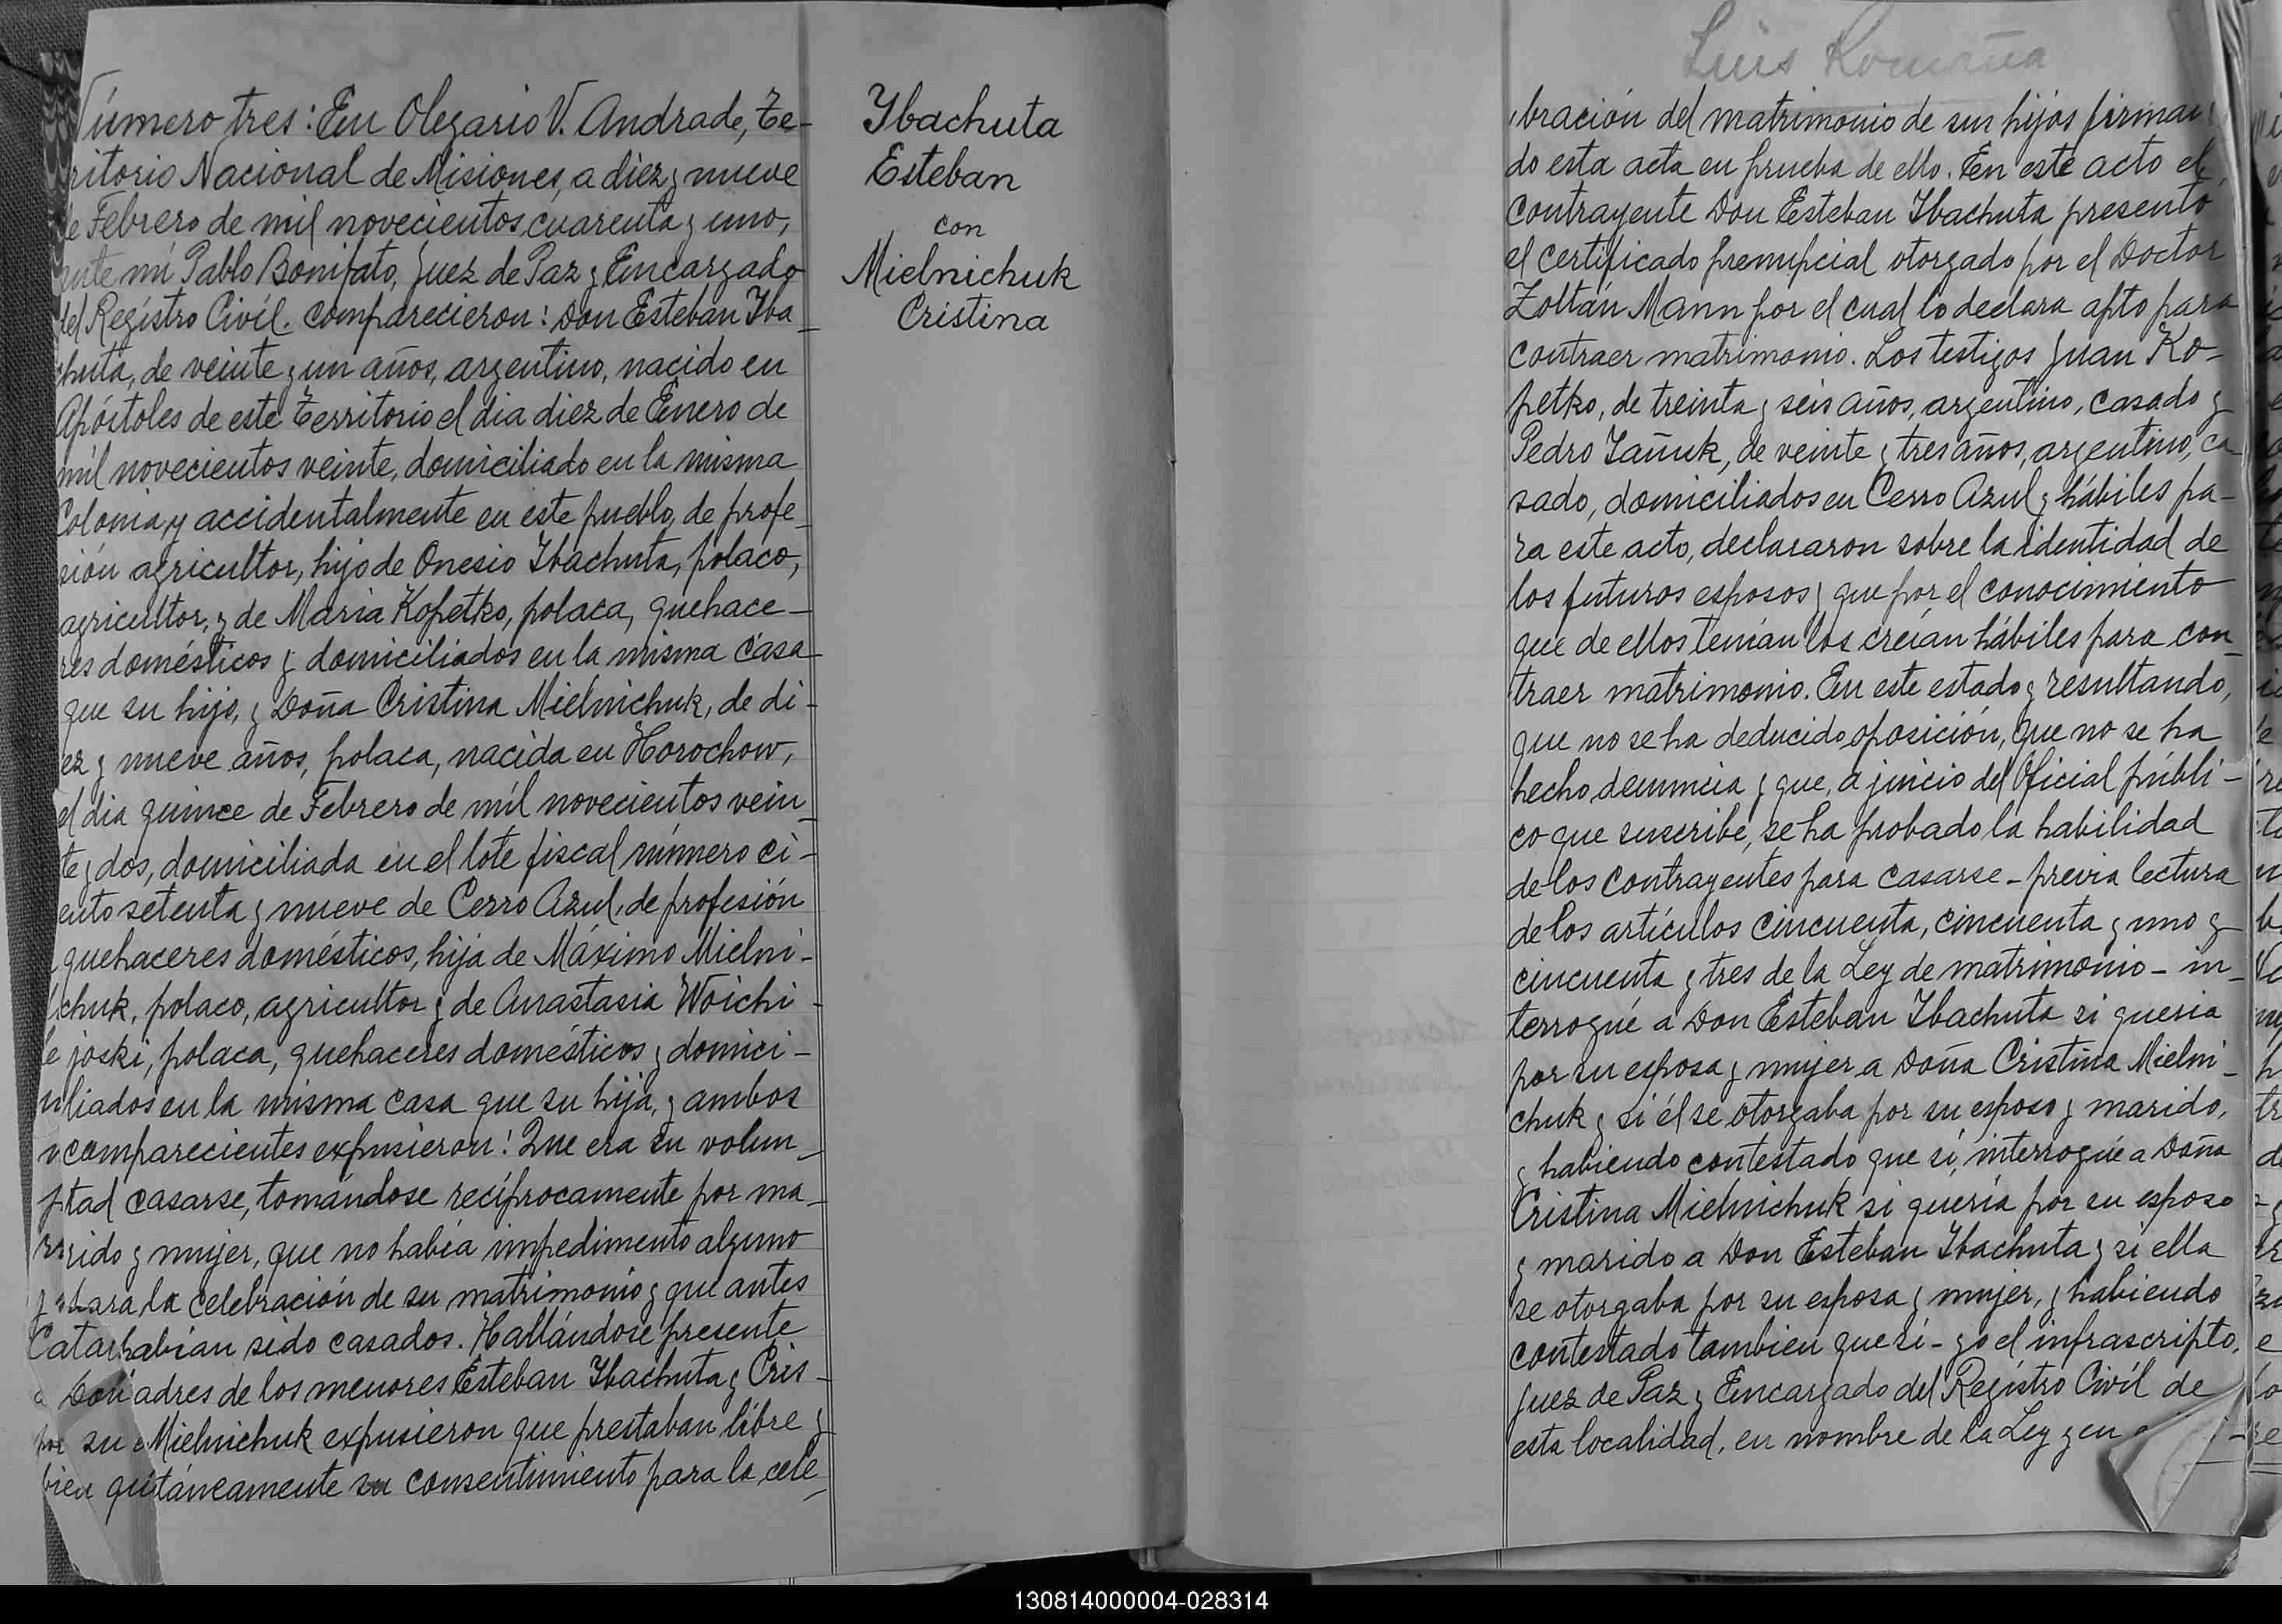 Número tres: En Olegario V. Andrade, Te-
rritorio Nacional de Misiones, a diez y nueve
de Febrero de mil novecientos cuarenta y uno,
ante mí Pablo Bonifato, Juez de Paz y Encargado
del Regístro Civíl. comparecieron: Don Esteban Iba-
chuta, de veinte y un años, argentino, nacido en
Apóstoles de este Territorio el dia diez de Enero de
mil novecientos veinte, domiciliado en la misma
Colonia, y accidentalmente en este pueblo, de profe-
sión agricultor, hijo de Onesio Ibachuta, polaco,
agricultor, y de Maria Kopetko, polaca, quehace-
res domésticos y domiciliados en la misma casa
que su hijo, y Doña Cristina Mielnichuk, de di-
ez y nueve años, polaca, nacida en Horochow,
el dia quince de Febrero de mil novecientos vein-
te y dos, domiciliada en el lote fiscal número ci-
ento setenta y nueve de Cerro Azul, de profesión
quehaceres domésticos, hija de Máximo Mielni-
chuk, polaco, agricultor y de Anastasia Woichi-
joski, polaca, quehaceres domésticos y domici-
liados en la misma casa que su hija, y ambos
comparecientes expusieron: Que era su volun-
tad casarse, tomándose recíprocamente por ma-
rido y mujer, que no había impedimento alguno
para la celebración de su matrimonio y que antes
habían sido casados. Hallándose presente
adres de los menores Esteban Ibachuta y Cris-
Mielnichuk expusieron que prestaban libre y
táneamente su consentimiento para la cele-
Ybachuta
Esteban
con
Mielnichuk
Cristina
Luis Romaña
bración del matrimonio de sus hijos firman
do esta acta en prueba de ello. En este acto el
contrayente Don Esteban Ibachuta presentó
el certificado prenupcial otorgado por el Doctor
Zoltán Mann por el cual lo declara apto para
contraer matrimonio. Los testigos Juan Ko-
petko, de treinta y seis años, argentino, casado y
Pedro Iañuk, de veinte y tres años, argentino, ca
sado, domiciliados en Cerro Azul y hábiles pa-
ra este acto, declararon sobre la identidad de
los futuros esposos y que por el conocimiento
que de ellos tenían los creían hábiles para con-
traer matrimonio. En este estado y resultando,
que no se ha deducido oposición, que no se ha
hecho denuncia y que, a juicio del Oficial públi-
co que suscribe, se ha probado la habilidad
de los contrayentes para casarse - previa lectura
de los artículos cincuenta, cincuenta y uno y
cincuenta y tres de la Ley de matrimonio - in-
terrogué a Don Esteban Ibachuta si queria
por su esposa y mujer a Doña Cristina Mielni-
chuk y si él se otorgaba por su esposo y marido,
y habiendo contestado que sí, interrogué a Doña
Cristina Mielnichuk si quería por su esposo
y marido a Don Esteban Ibachuta y si ella
se otorgaba por su esposa y mujer, y habiendo
contestado tambien que sí - yo el infrascripto,
Juez de Paz y Encargado del Regístro Civíl de
esta localidad, en nombre de la Ley y en
130814000004-028314